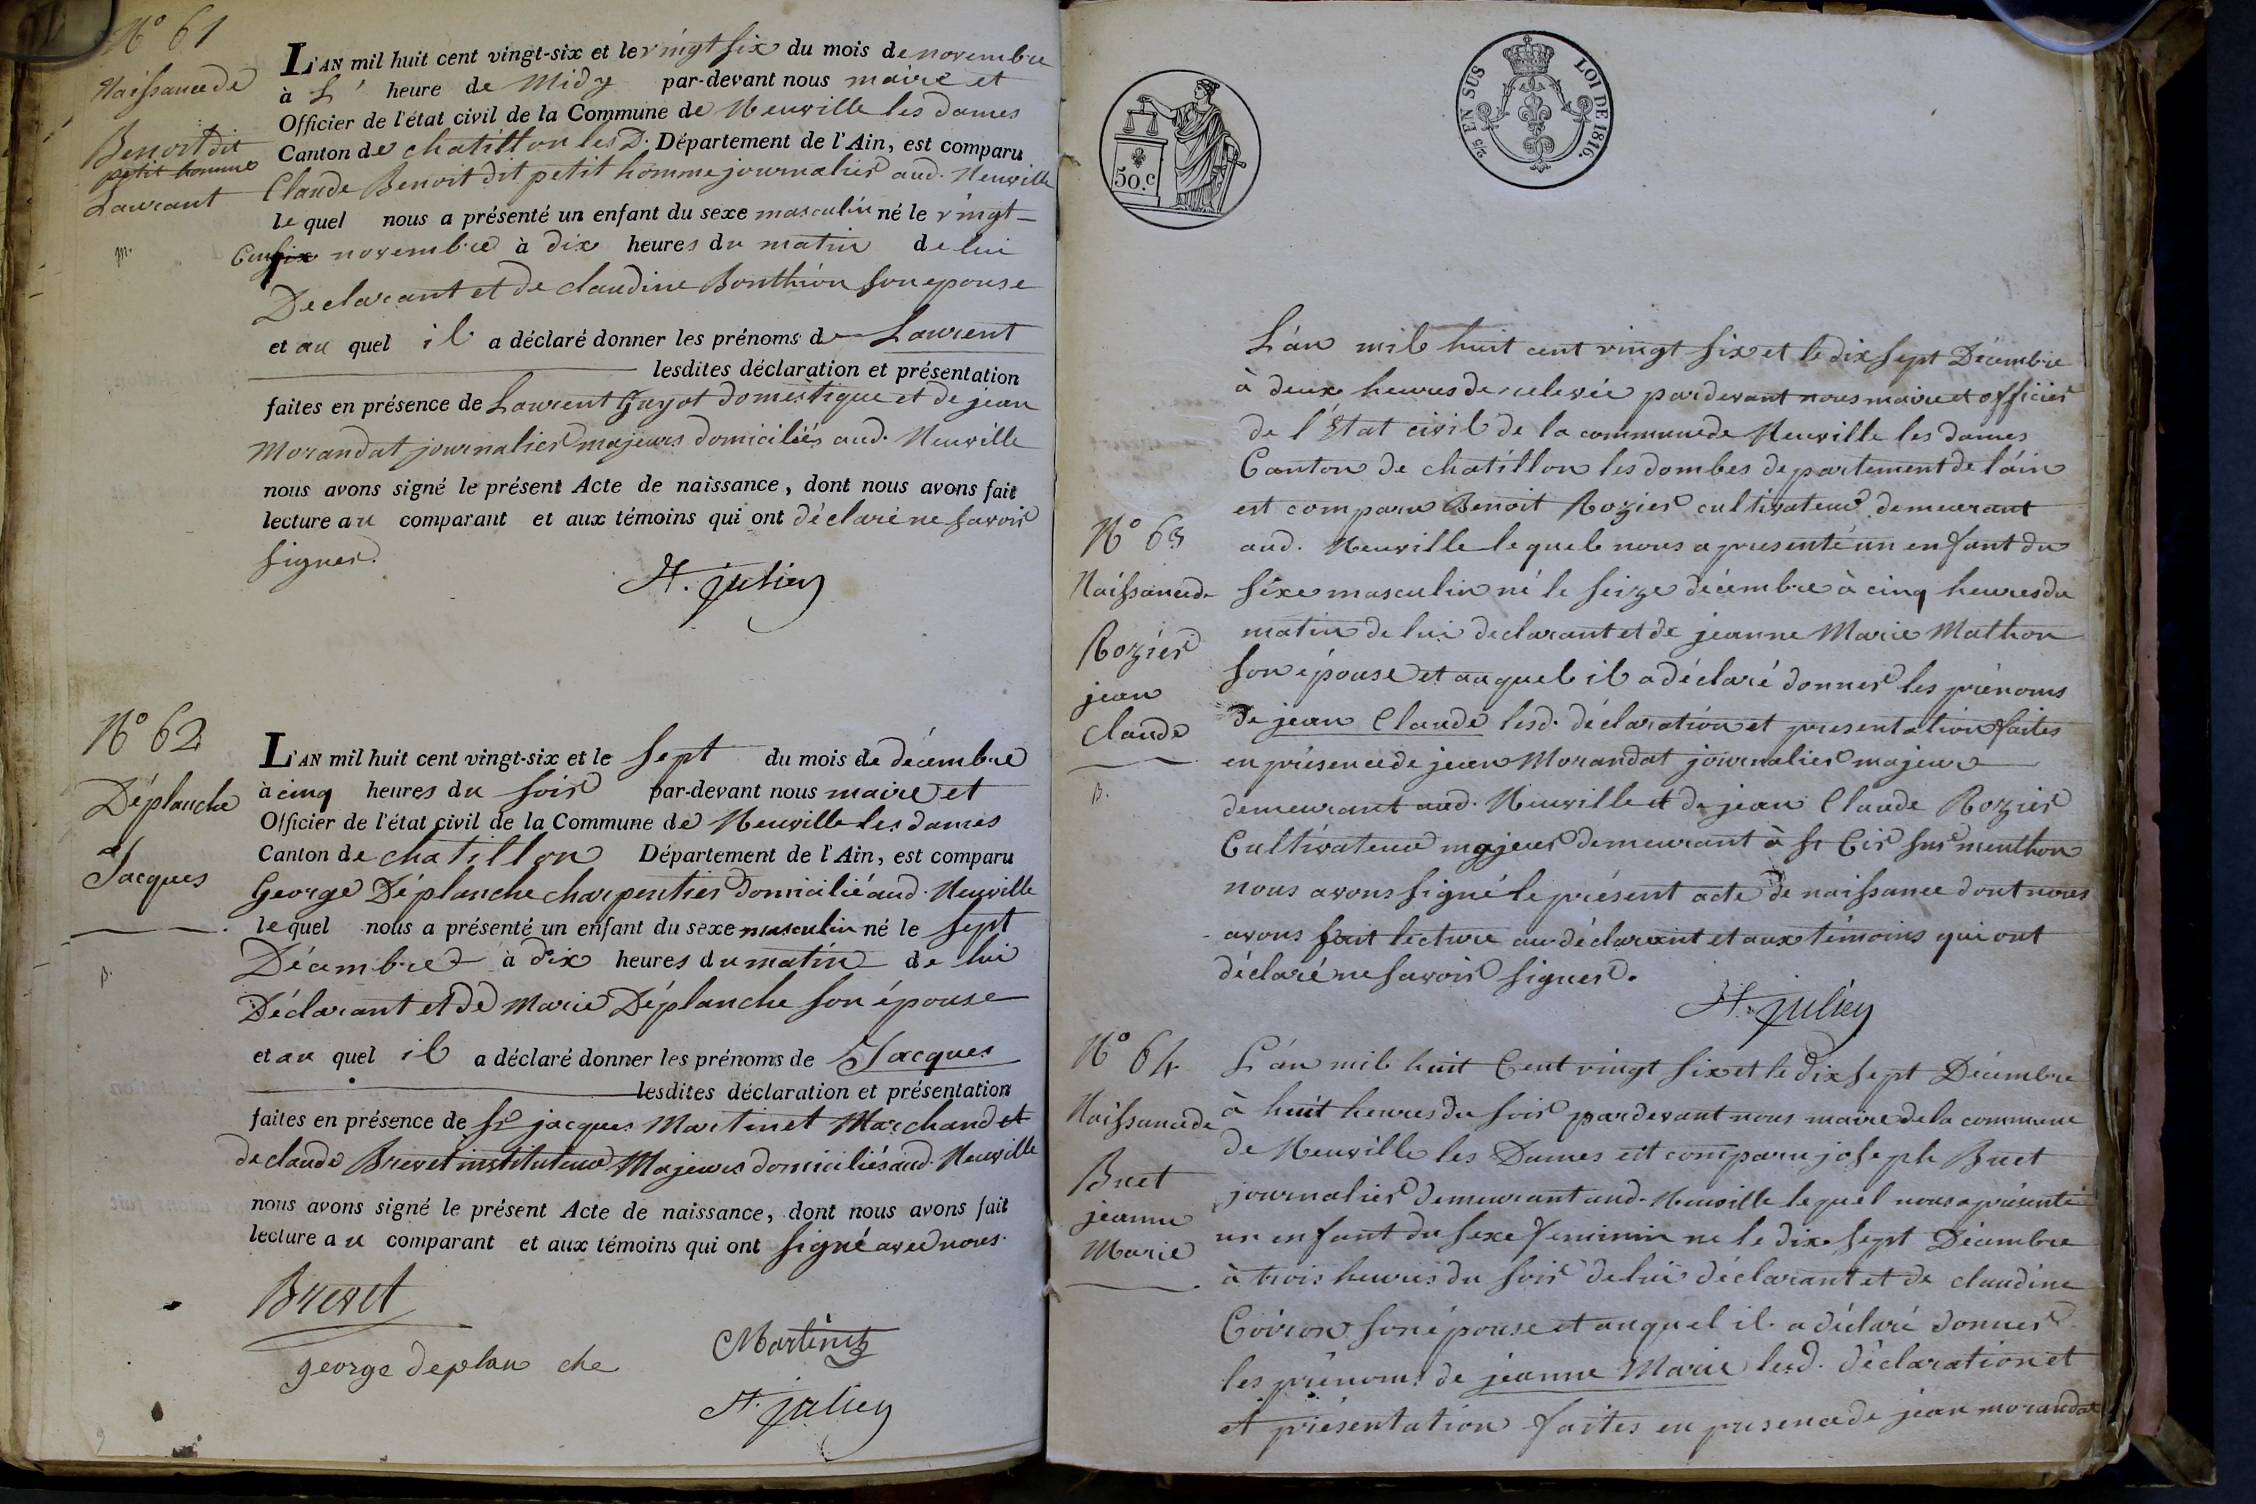 N° 61
Naissance de
Benoit dit
petit homme
Laurant
m.
L'AN mil huit cent vingt-six et le vingt six du mois de novembre
à L' heure de Midy par-devant nous maire et
Officier de l'état civil de la Commune de Neuville les dames
Canton de chatillon les D. Département de l'Ain, est comparu
Claude Benoit dit petit homme journalier aud. Neuville
le quel nous a présenté un enfant du sexe masculin né le vingt-
Cinq six novembre à dix heures du matin de lui
Declarant et de claudine Bonthion son epouse
et au quel il a déclaré donner les prénoms de Laurent
lesdites déclaration et présentation
faites en présence de Laurent Guyot domestique et de jean
Morandat journalier majeurs domiciliés aud. Neuville
nous avons signé le présent Acte de naissance, dont nous avons fait
lecture au comparant et aux témoins qui ont déclaré ne savoir
signer.
H. julien
N° 62
Déplanche
Jacques
B.
L'AN mil huit cent vingt-six et le sept du mois de décembre
à cinq heures du soir par-devant nous maire et
Officier de l'état civil de la Commune de Neuville les dames
Canton de chatillon Département de l'Ain, est comparu
George Déplanche charpentier domicilié aud. Neuville
le quel nous a présenté un enfant du sexe masculin né le sept
Décembre à dix heures du matin de lui
Déclarant et de Marie Déplanche son épouse
et au quel il a déclaré donner les prénoms de Jacques
lesdites déclaration et présentation
faites en présence de Sr jacques Martinet Marchand et
de claude Brevet instituteur Majeurs domiciliés aud. Neuville
nous avons signé le présent Acte de naissance, dont nous avons fait
lecture au comparant et aux témoins qui ont signé avec nous.
Brevet
george deplan che
Martinet
H. julien
50.c
2/5 EN SUS
LOI DE 1816.
N° 63
Naissance de
Rozier
jean
Claude
B.
L'an mil huit cent vingt six et le dix sept Décembre
à deux heures de relevée pardevant nous maire et officier
de l'Etat civil de la commune de Neuville les dames
Canton de chatillon les dombes departement de l'ain
est comparu Benoit Rozier cultivateur demeurant
aud. Neuville le quel nous a presenté un enfant du
séxe masculin né le seize décembre à cinq heures du
matin de lui declarant et de jeanne Marie Mathon
son épouse et auquel il a déclaré donner les prénoms
de jean Claude lesd. déclaration et presentation faites
en présence de jean Morandat journalier majeur
demeurant aud. Neuville et de jean Claude Rozier
Cultivateur majeur demeurant à St Cir sur menthon
nous avons signé le présent acte de naissance dont nous
avons fait lecture au déclarant et aux témoins qui ont
déclaré ne savoir signer.
H. julien
N° 64
Naissance de
Buet
jeanne
Marie
L'an mil huit Cent vingt six et le dix sept Décembre
à huit heures du soir pardevant nous maire de la commune
de Neuville les Dames est comparu joseph Buet
journalier demeurant aud. Neuville le quel nous a présenté
un enfant du sexe feminin né le dix sept Décembre
à trois heures du soir de lui déclarant et de claudine
Coiron son épouse et auquel il a déclaré donner
les prénoms de jeanne Marie lesd. déclaration et
et présentation faites en presence de jean morandat